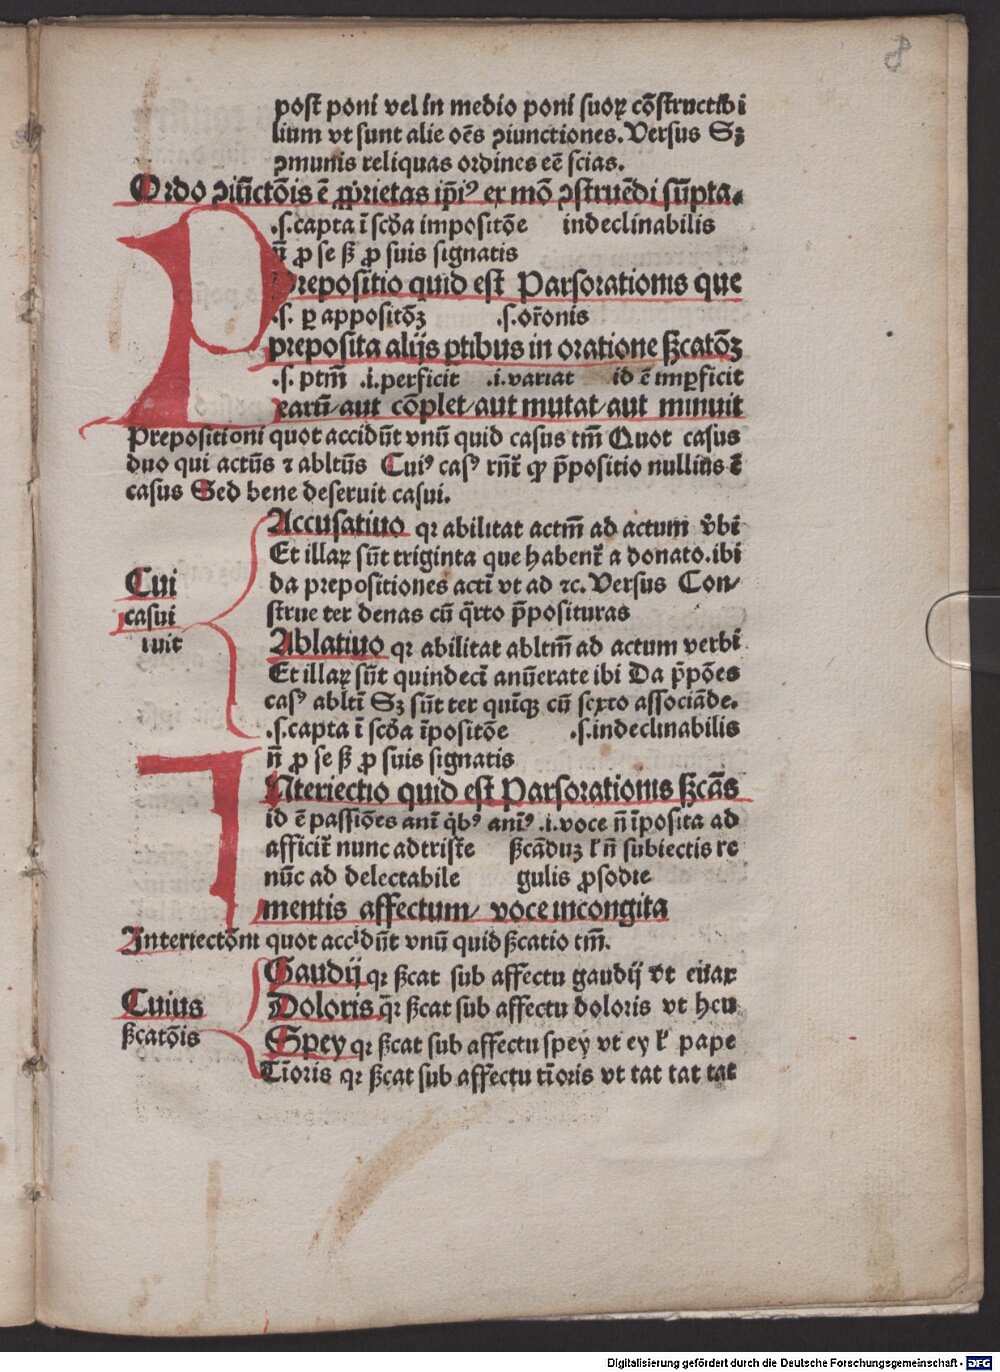 8
post poni vel in medio poni suoꝝ cōstructibi
lium vt sunt alie oēs ꝯiunctiones. Versus Sꝫ
ꝯmunis reliquas ordines eē scias.
Ordo ꝯiūctōis ē ꝓprietas ip̄iꝰ ex mō ꝯstruēdi sūpta.
.s. capta ī scd̄a impositōe indeclinabilis
n̄ ꝓ se ẞ ꝓ suis signatis
PRepositio quid est Parsorationis que
.s. ꝑ appositōꝫ .s. or̄onis
preposita alijs ꝑtibus in oratione ẞcatōꝫ
.s. ptm̄ .i. perficit .i. variat id ē imꝑficit
earū/ aut cōplet/ aut mutat/ aut minuit
Prepositioni quot accidūt vnū quid casus tm̄ Quot casus
duo qui actūs ⁊ abltūs Cuiꝰ casꝰ rn̄t̄ ꝙ p̄positio nullius ē
casus Sed bene deseruit casui.
Accusatiuo qꝛ abilitat actm̄ ad actum v̄bi
Et illaꝝ sūt triginta que habent̄ a donato. ibi
da prepositiones acti vt ad ⁊c. Versus Con/
strue ter denas cū q̄rto p̄posituras
Cui
casui
iuit
Ablatiuo qꝛ abilitat abltm̄ ad actum verbi
Et illaꝝ sūt quindeci anūerate ibi Da p̄pōes
casꝰ ablti Sꝫ sūt ter quīqꝫ cū sexto associāde.
.s. capta ī scd̄a īpositōe .s. indeclinabilis
n̄ ꝓ se ẞ ꝓ suis signatis
INteriectio quid est Parsorationis ẞcās
id ē passiōes ani q̄bꝰ aniꝰ .i. voce n̄ īposita ad
afficit̄ nunc ad triste ẞcāduꝫ ł n̄ subiectis re
nūc ad delectabile gulis ꝓsodie
mentis affectum/ voce incongita
Interiectōni quot accidūt vnū quid ẞcatio tm̄.
Cuius
ẞcatōis
Gaudij qꝛ ẞcat sub affectu gaudij vt euax
Doloris qꝛ ẞcat sub affectu doloris vt heu
Spey qꝛ ẞcat sub affectu spey vt ey ł pape
Tīoris qꝛ ẞcat sub affectu tīoris vt tat tat tat
Digitalisierung gefördert durch die Deutsche Forschungsgemeinschaft - DFG